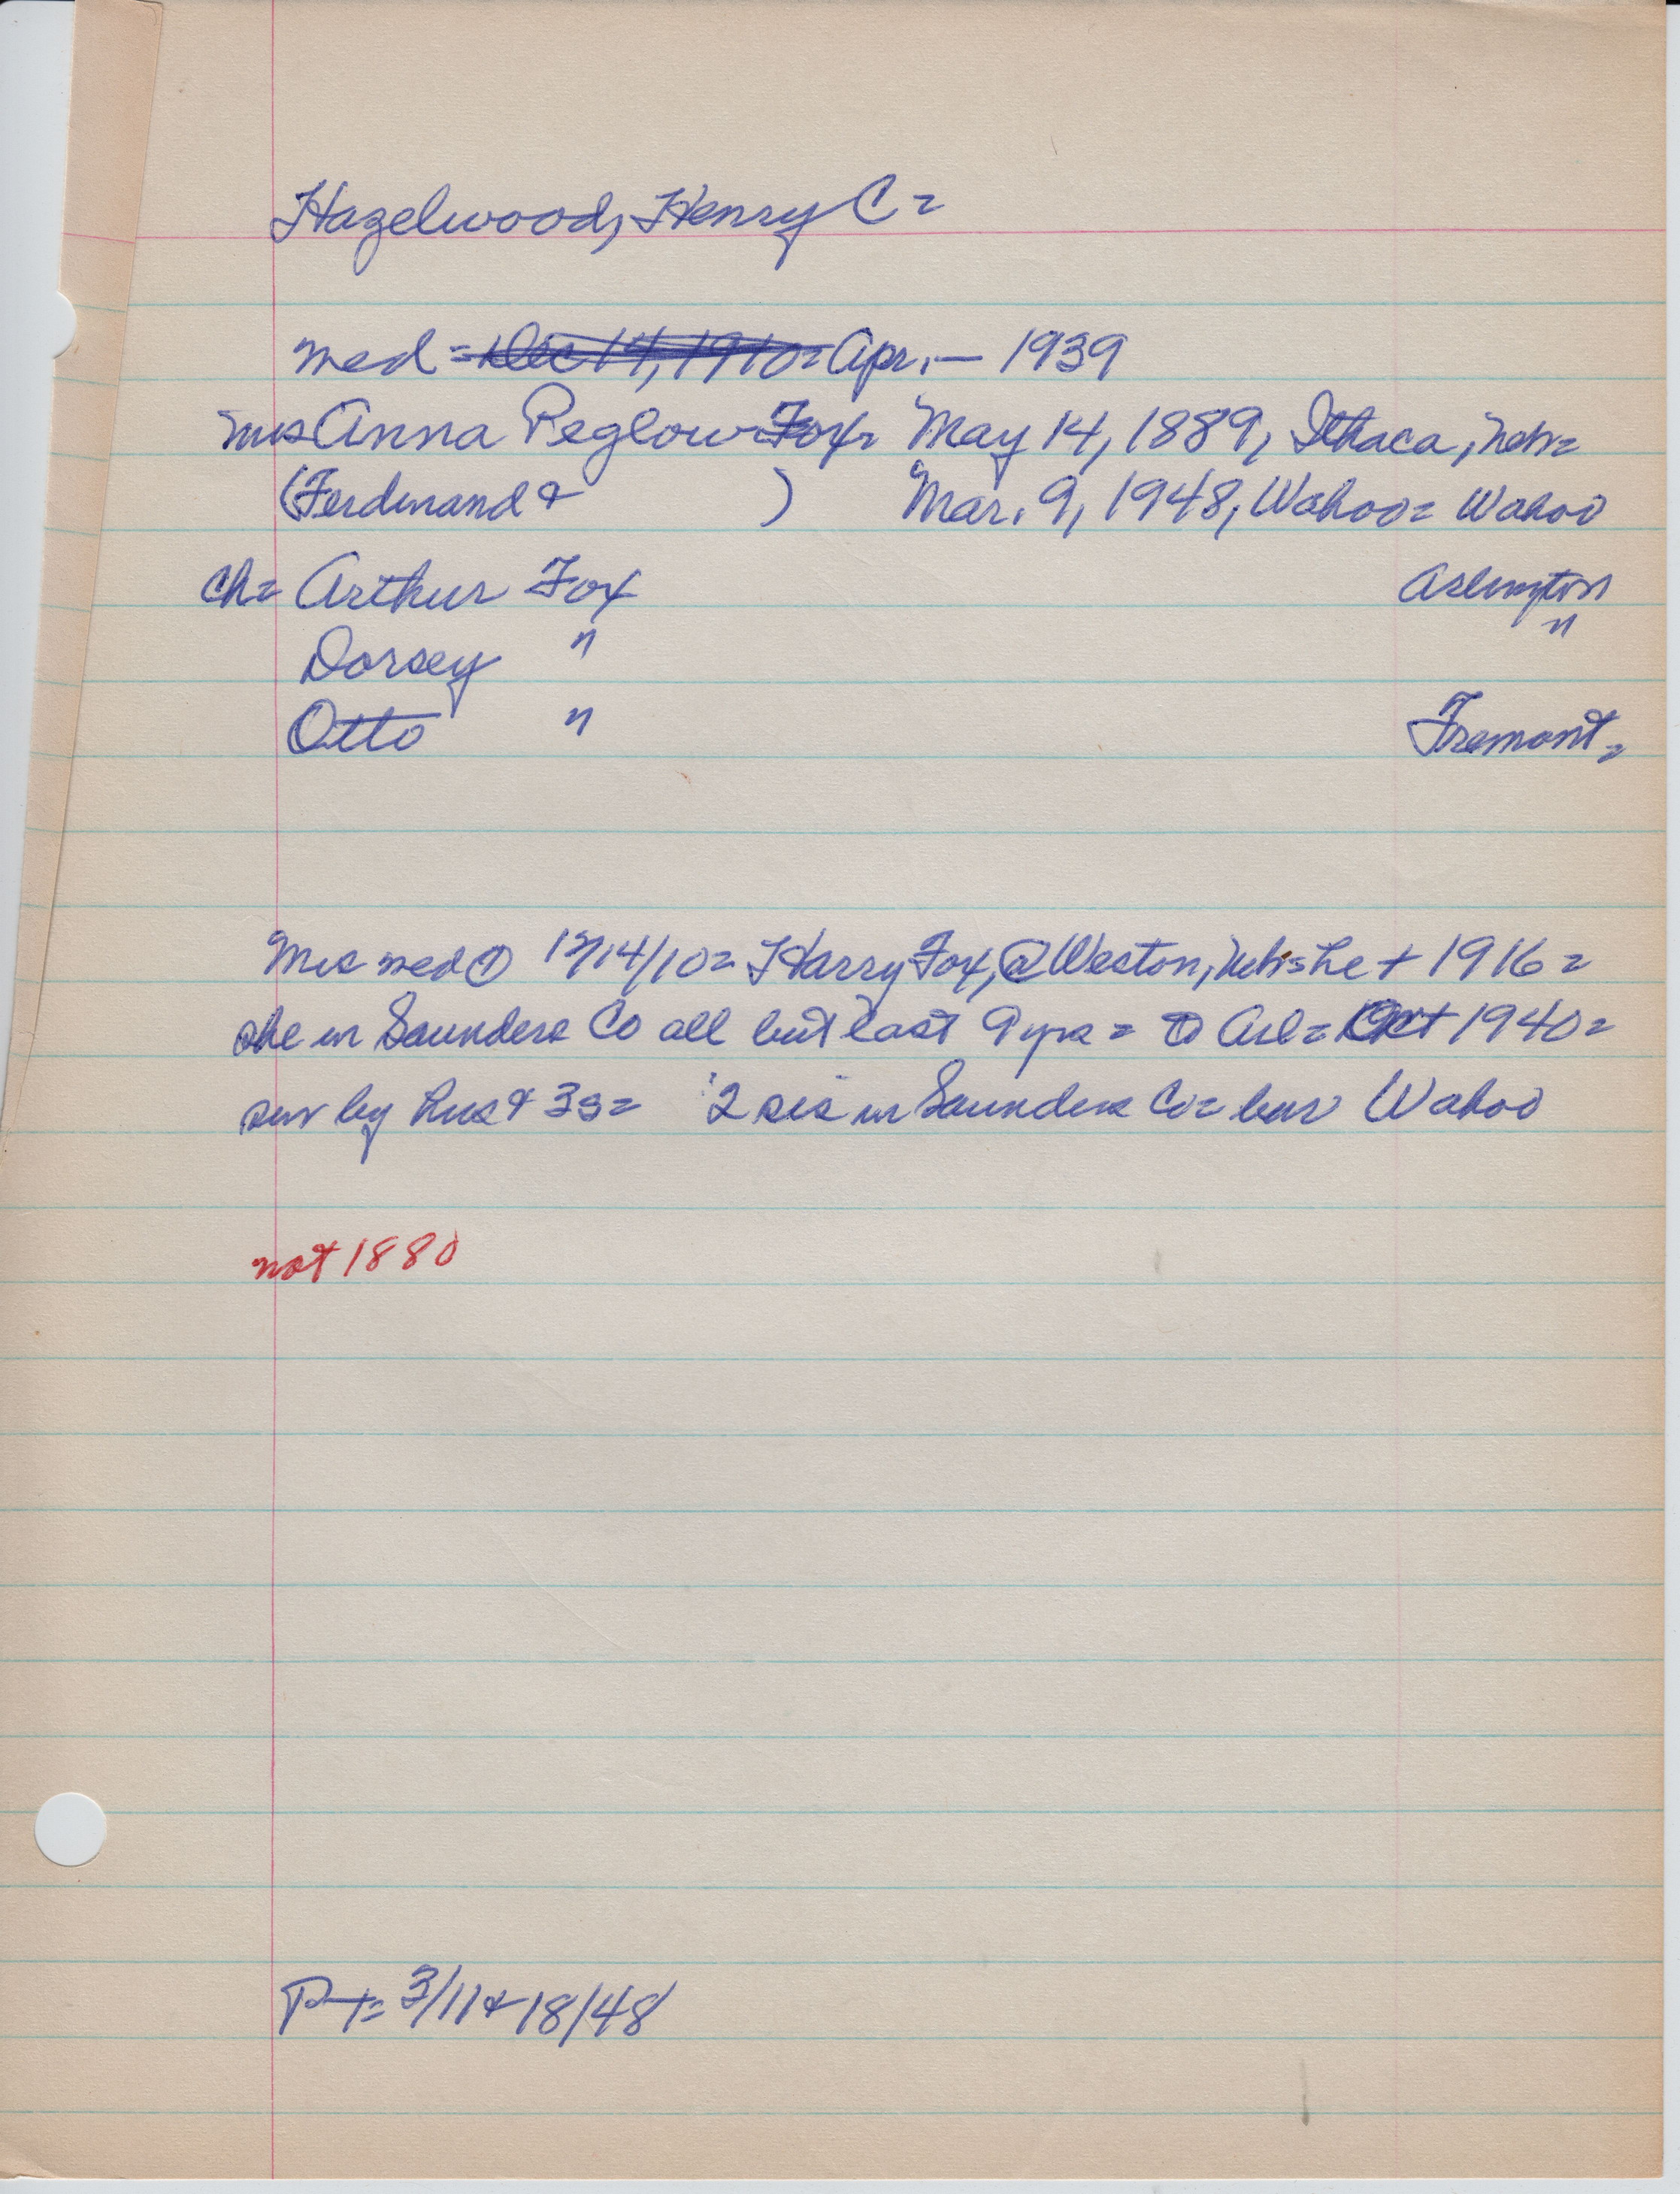 Hazelwood, Henry C =
med = Dec 14, 1910 = Apr. — 1939
Mrs Anna Peglow Fox = May 14, 1889, Ithaca, Neb =
(Ferdinand & ) Mar. 9, 1948, Wahoo = Wahoo
ch = Arthur Fox Arlington
Dorsey " "
Otto " Fremont =
Mrs med ① 12/14/10 = Harry Fox, @ Weston, Neb = he + 1916 =
she in Saunders Co all but last 9 yrs = to Arl = Oct 1940 =
sur by hus & 3s = 2 sis in Saunders Co = bur Wahoo
not 1880
P-t = 3/11 & 18/48